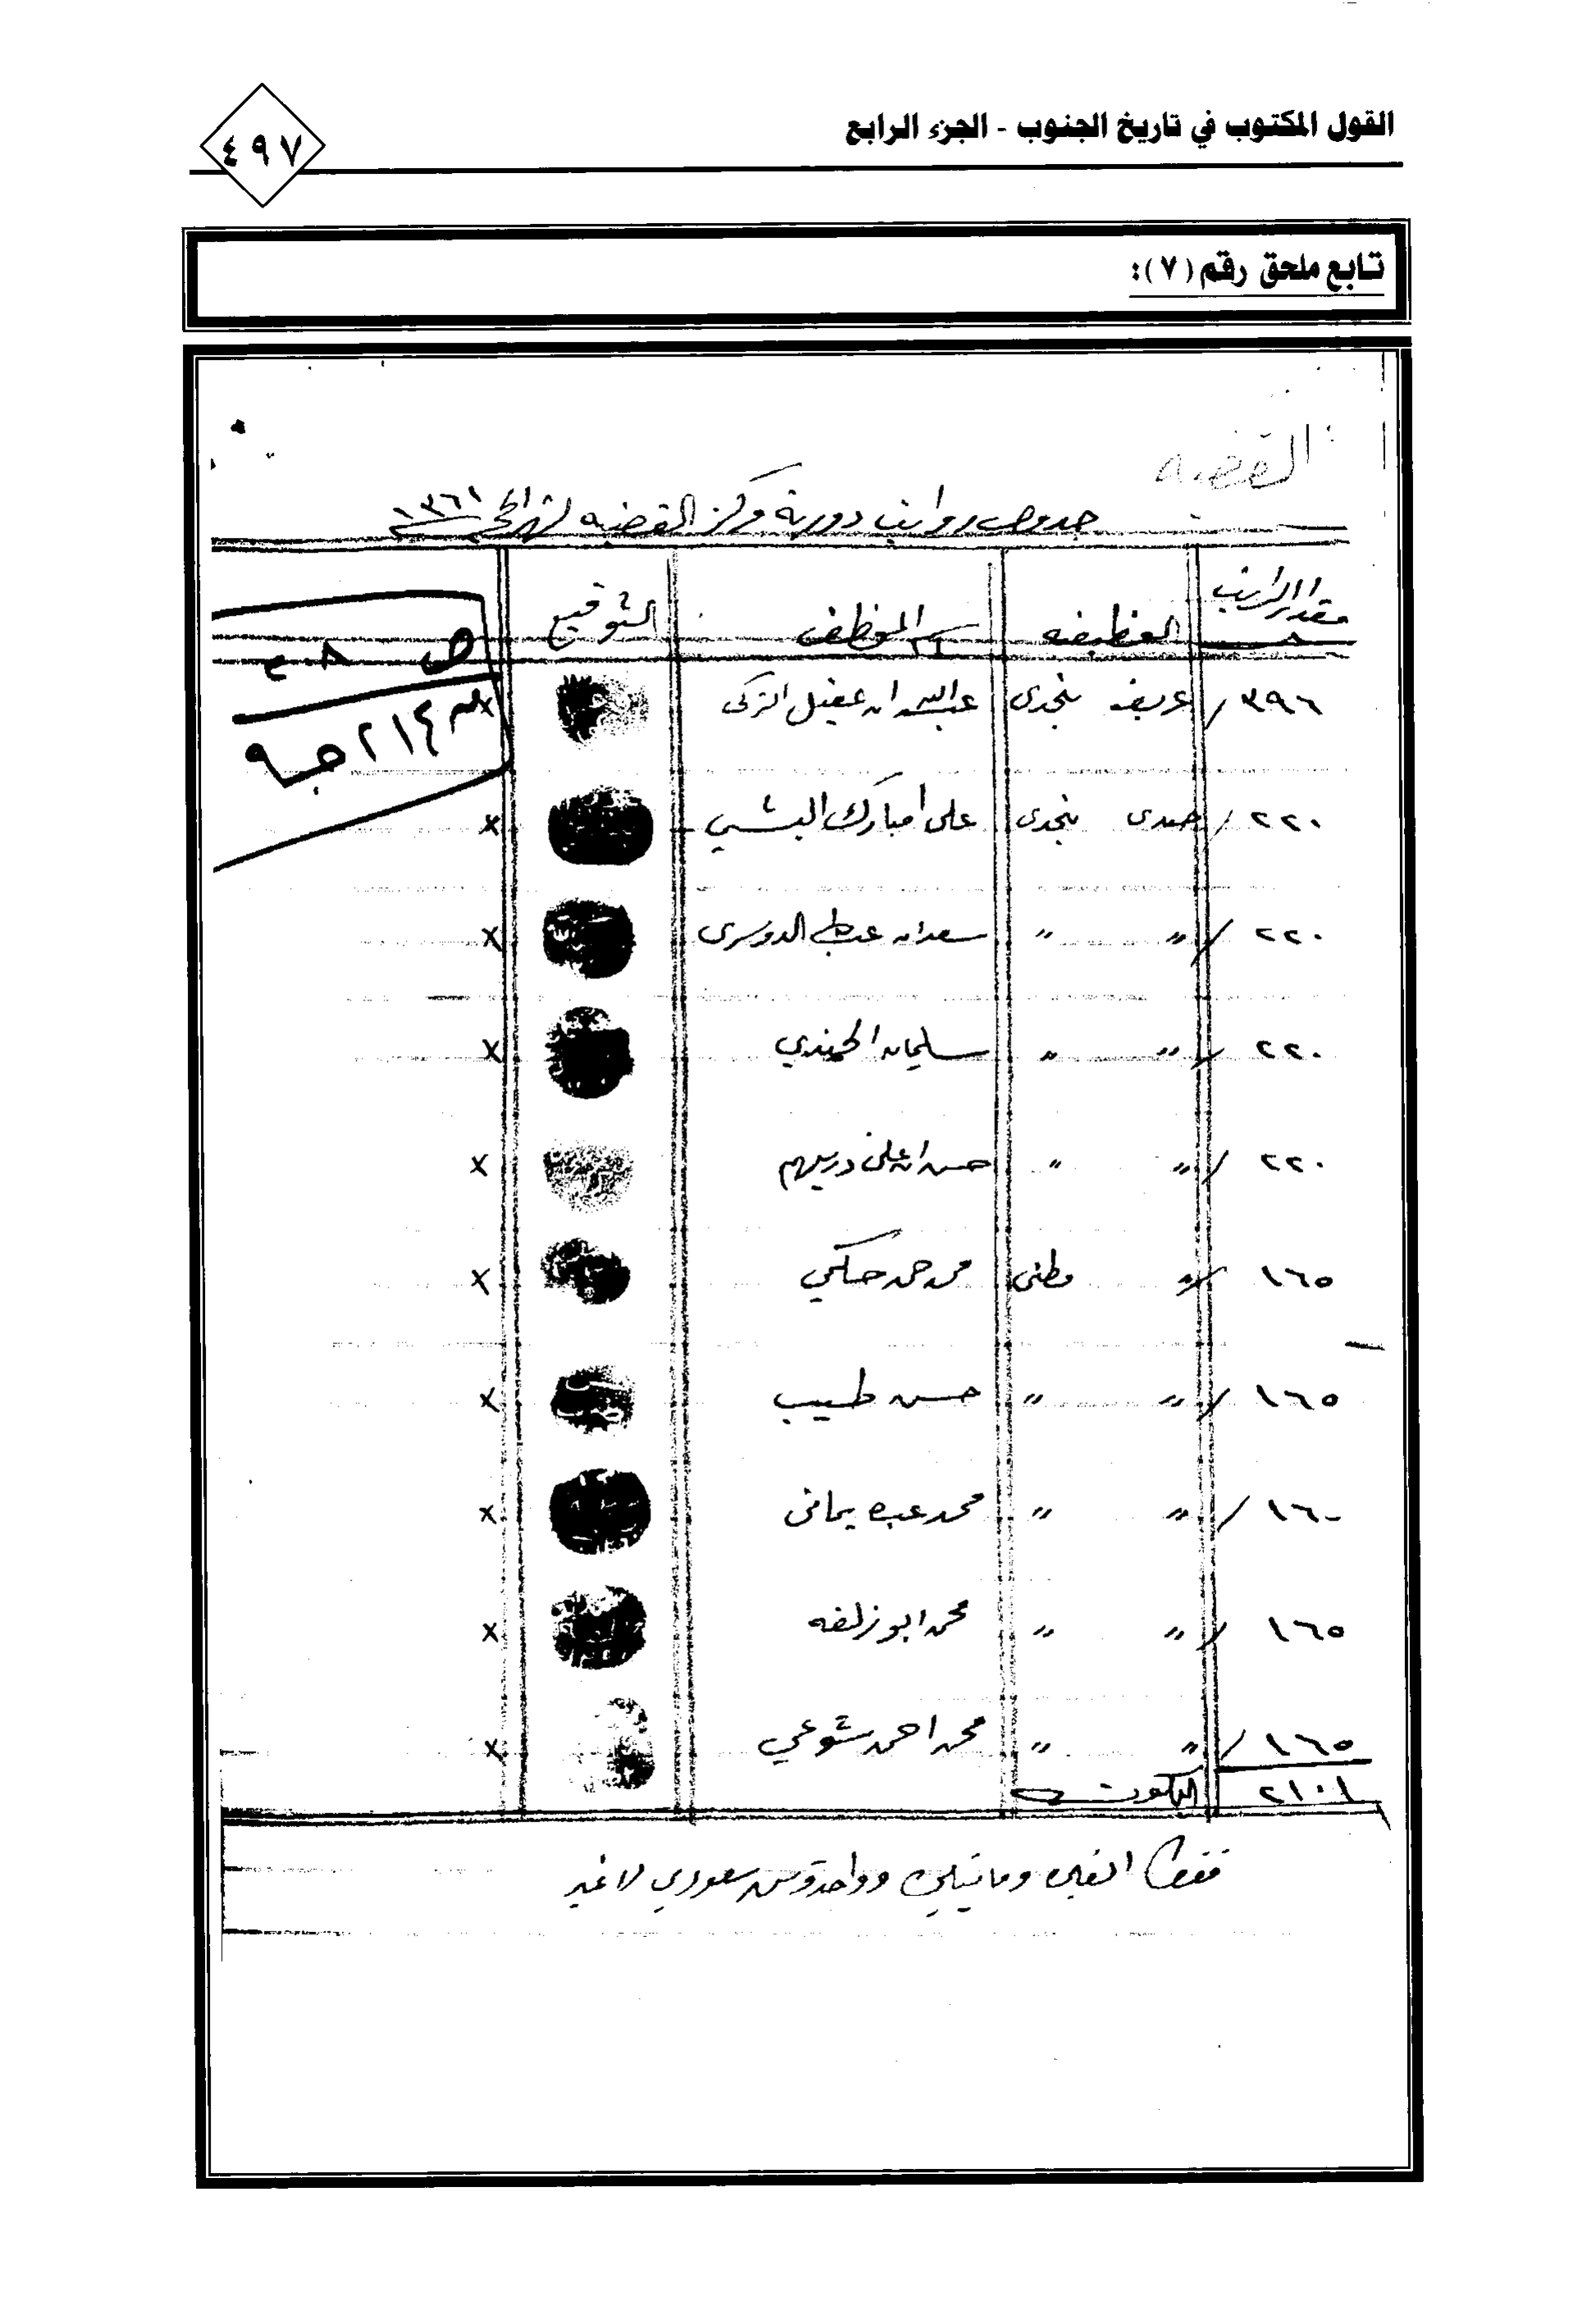 القول المكتوب في تاريخ الجنوب - الجزء الرابع
٤٩٧
تابع ملحق رقم (٧):
القضبه
جدول رواتب دورية مركز القضبه لشهر ١٣٦١
مقدار الراتب الوظيفه اسم الموظف التوقيع
٣٩٦/ عريف نجدى عبدالله ابن عقيل التركى
٢٢٠/ جندى نجدى على امبارك البشي x
٢٢٠/ " " سعد ابن الدوسرى x
٢٢٠/ " " سليمان x
٢٢٠/ " " حسن ابن على دريهم x
١٦٥/ " وطنى حكمي x
١٦٥/ " " حسن طيب x
١٦٠/ " " محمد عبده يمانى x
١٦٥/ " " محمد ابو زلفه x
١٦٥/ " " محمد احمد شوعي x
٢١٠١
٢١٤ جـ ٩
فقط الفين ومائتين وواحد سعودي لاغير